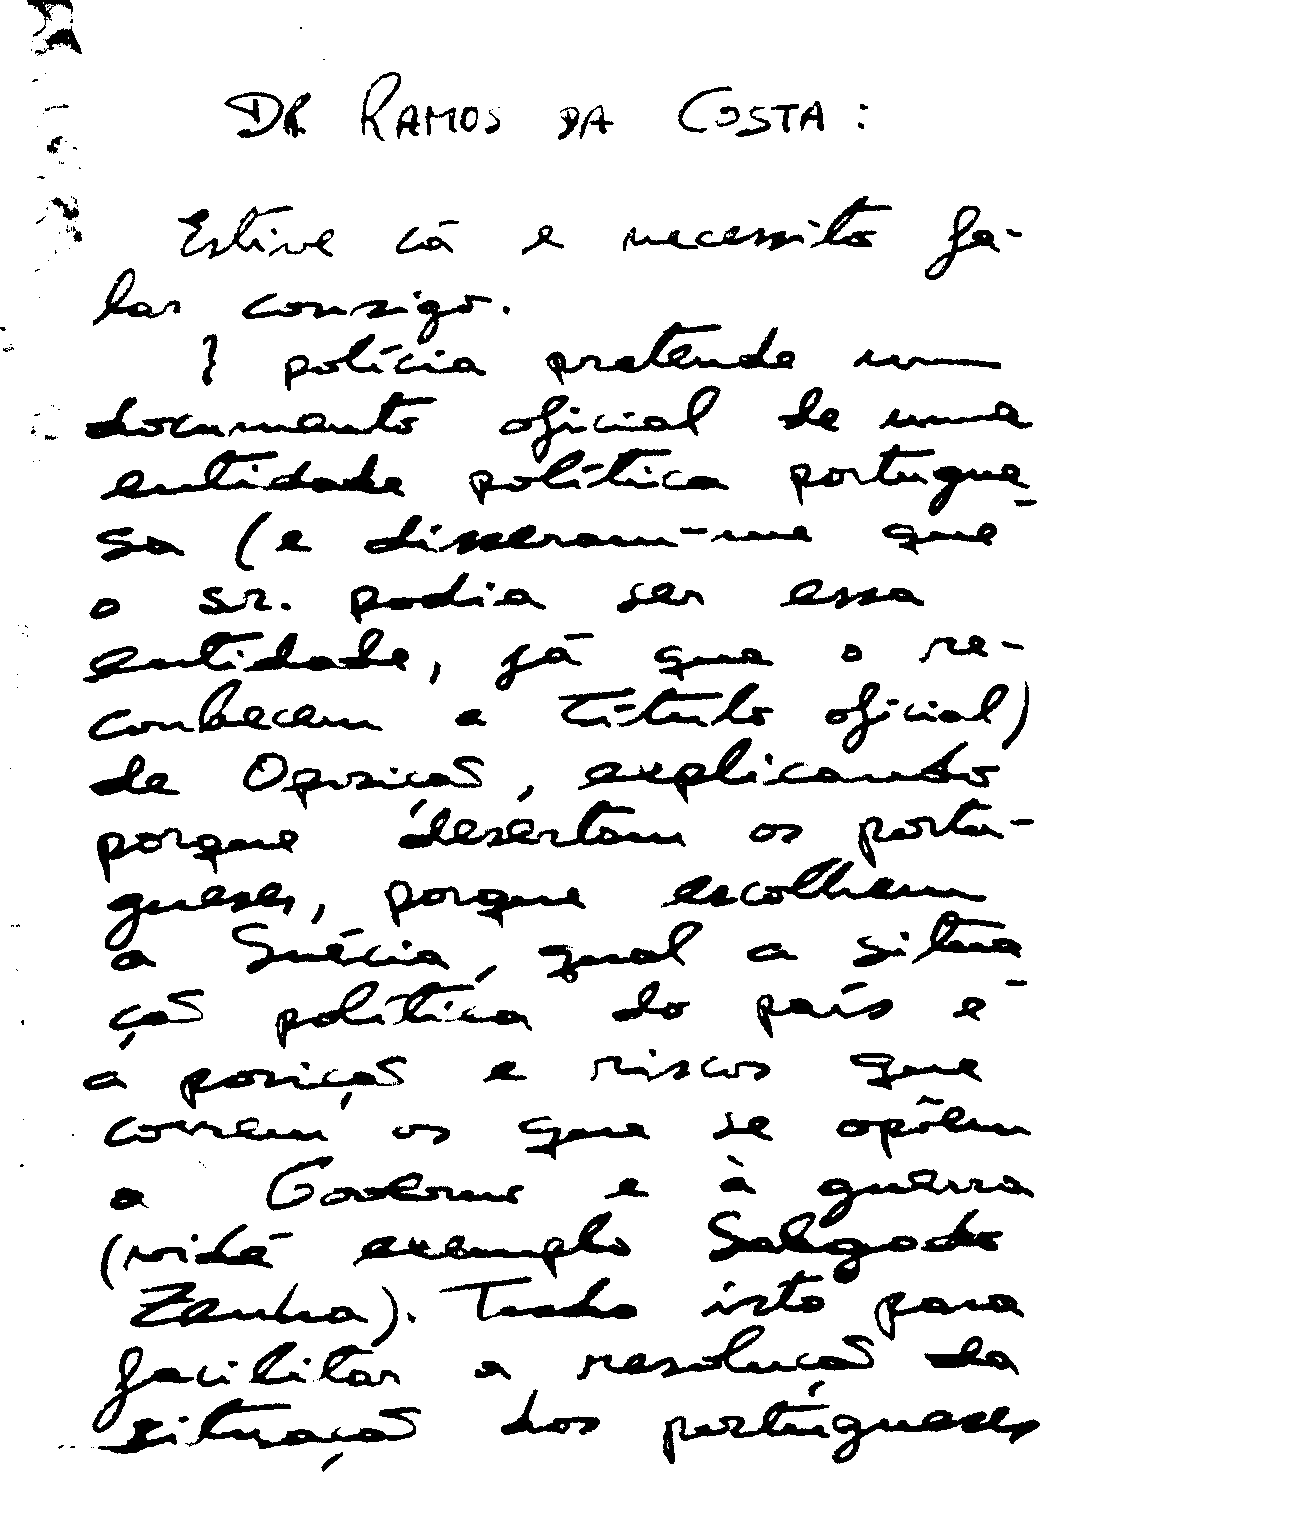 DR RAMOS DA COSTA:
Estive cá e necessito fa-
lar consigo.
A polícia pretende um
documento oficial de uma
entidade política portugue-
sa (e disseram-me que
o sr. podia ser essa
entidade, já que o re-
conhecem a título oficial)
de Oposição, explicando
porque desertam os portu-
gueses, porque escolhem
a Suécia, qual a situa-
ção política do país e
a posição e riscos que
correm os que se opõem
a Governo e à guerra
(vidé exemplo Salgado
Zenha). Tudo isto para
facilitar a resolução da
situação dos portugueses